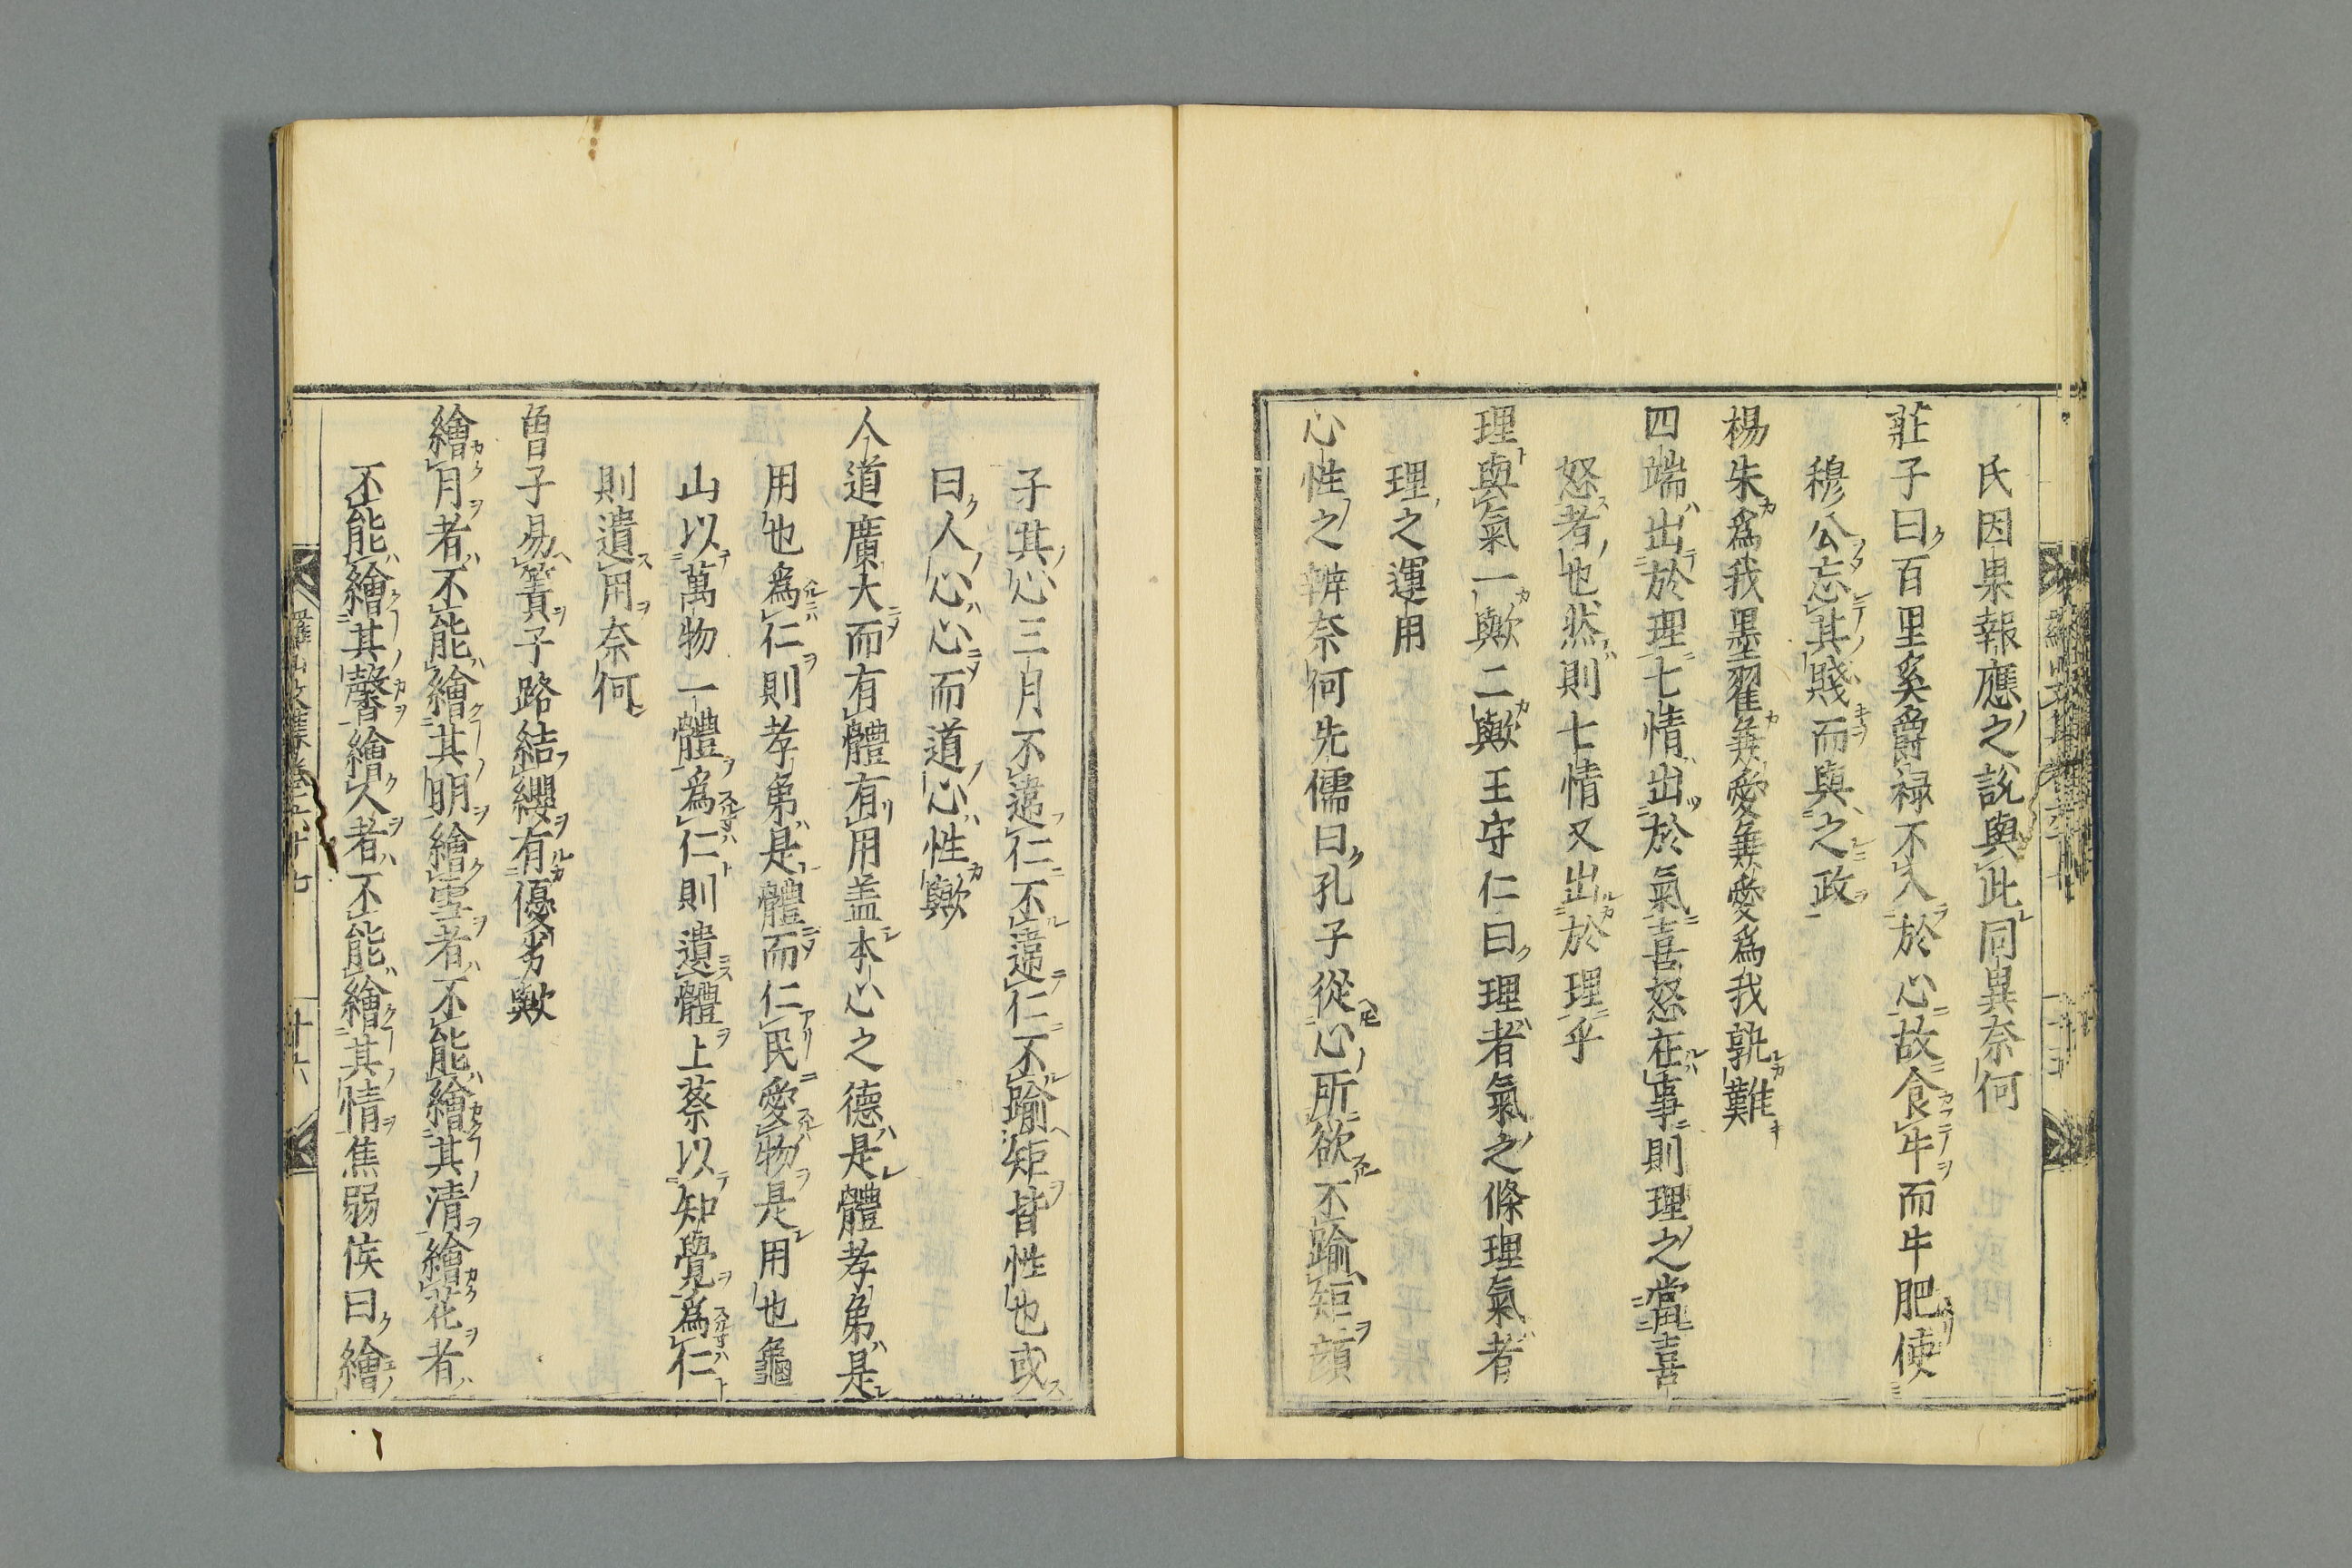 氏因果報應之說與此同異奈何
莊子曰百里奚爵祿不入於心故食牛而牛肥使
穆公忘其賤而與之政
楊朱爲我墨翟兼愛兼愛爲我孰難
四端出於理七情出於氣喜怒在事則理之當喜
怒者也然則七情又出於理乎
理與氣一歟二歟王守仁曰理者氣之條理氣者
理之運用
心性之辨奈何先儒曰孔子從心所欲不踰矩顔
子其心三月不違仁不違仁不踰矩皆性也或
曰人心心而道心性歟
人道廣大而有體有用盖本心之德是體孝弟是
用也爲仁則孝弟是體而仁民愛物是用也龜
山以萬物一體爲仁則遺體上蔡以知覺爲仁
則遺用奈何
曾子易簀子路結纓有優劣歟
繪月者不能繪其明繪雪者不能繪其清繪花者
不能繪其馨繪人者不能繪其情焦弱侯曰繪
羅山文集卷三十七
十六